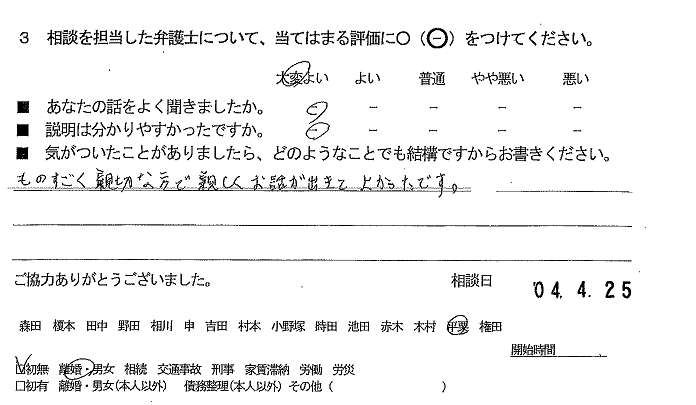 3 相談を担当した弁護士について、当てはまる評価に○（⊖）をつけてください。
大変よい よい 普通 やや悪い 悪い
■ あなたの話をよく聞きましたか。 － － － － －
■ 説明は分かりやすかったですか。 － － － － －
■ 気がついたことがありましたら、どのようなことでも結構ですからお書きください。
ものすごく親切な方で親しくお話が出きてよかったです。
ご協力ありがとうございました。 相談日 '04. 4. 25
森田 榎本 田中 野田 相川 申 吉田 村本 小野塚 時田 池田 赤木 木村 平栗 権田
開始時間
□初無 離婚・男女 相続 交通事故 刑事 家賃滞納 労働 労災
□初有 離婚・男女(本人以外) 債務整理(本人以外) その他（ ）